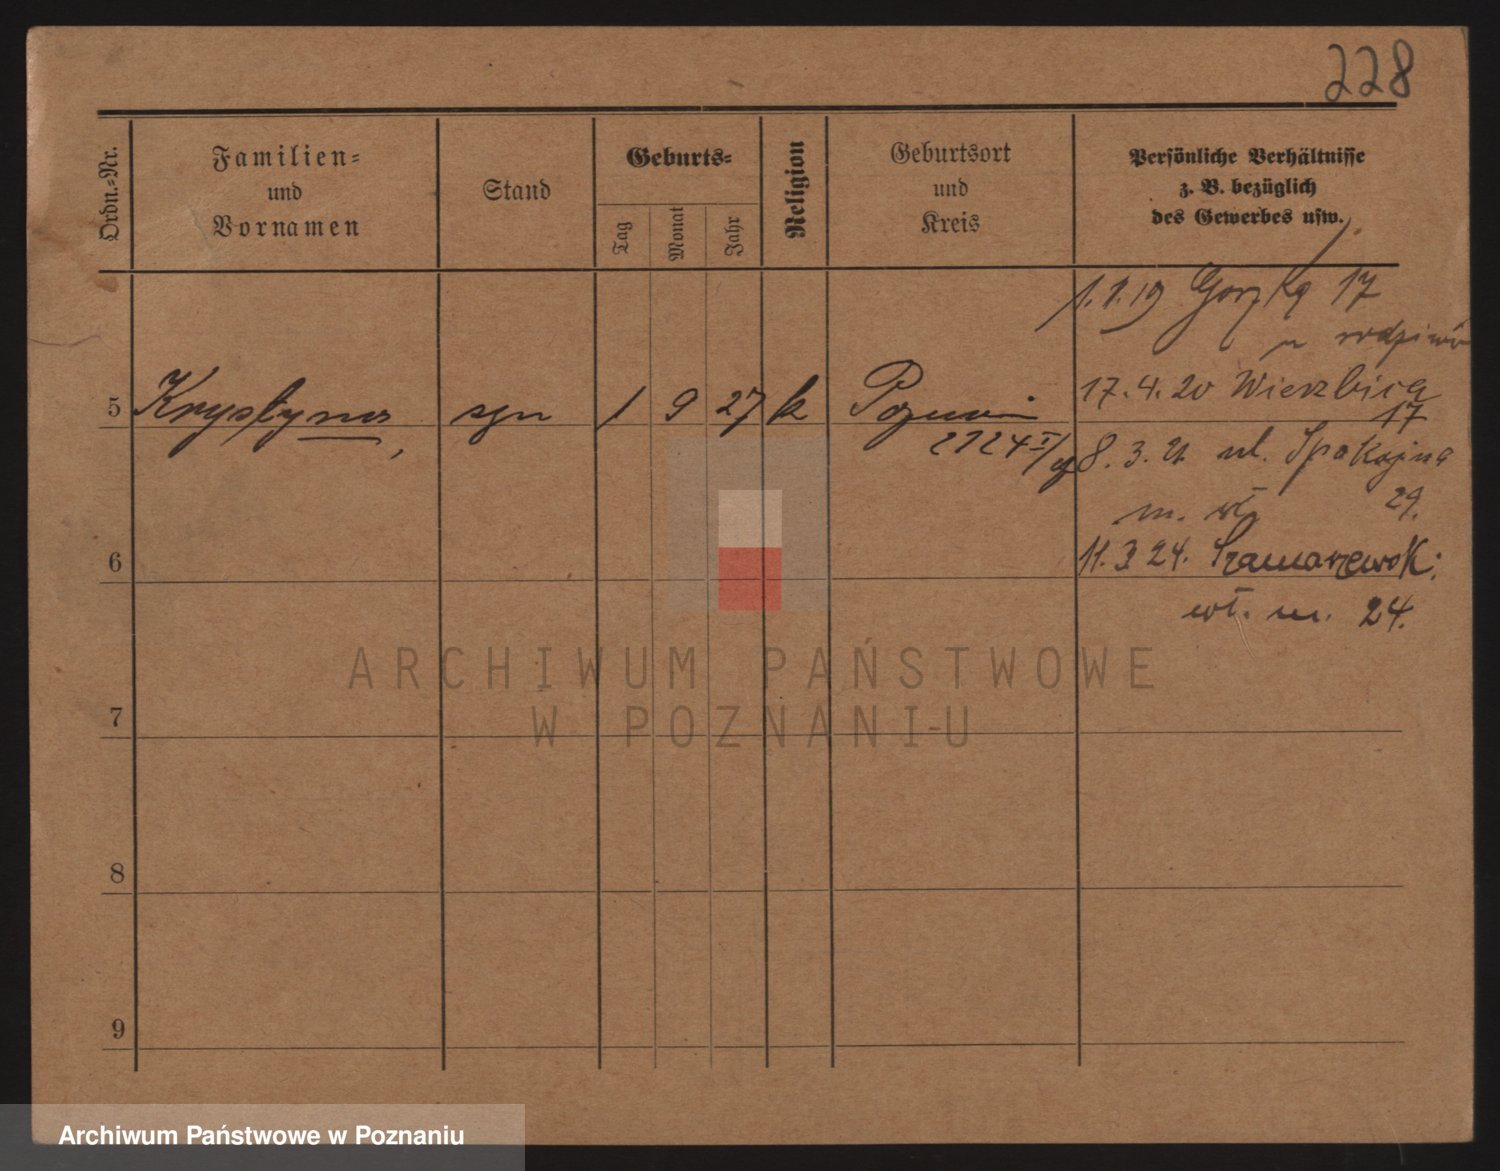 228
Ordn.-Nr.
Familien-
und
Vornamen
Stand
Geburts-
Tag
Monat
Jahr
Religion
Geburtsort
und
Kreis
Persönliche Verhältnisse
z. B. bezüglich
des Gewerbes usw.
1.1.19 Gorzka 17
17.4.20 Wierzbica
17
5 Krystyna, 1 9 27 k Poznań
8.3.21 ul. Spokojna
m. wł. 29.
6
11.3 24. Szamarzewsk:
wł. m. 24.
7
8
9
ARCHIWUM PAŃSTWOWE
W POZNANIU
Archiwum Państwowe w Poznaniu